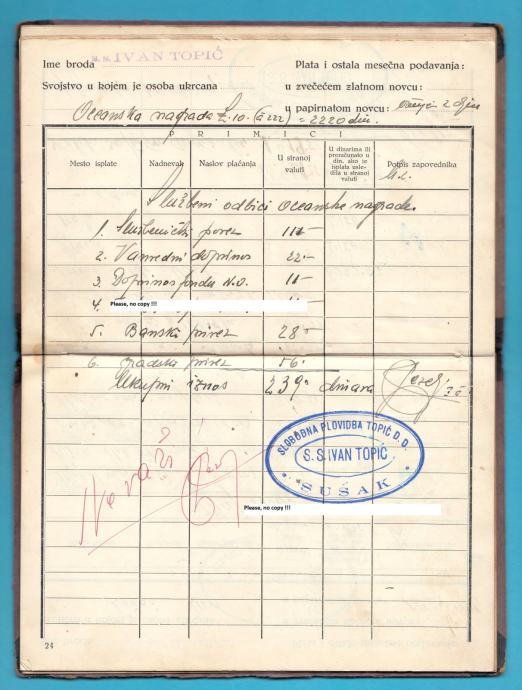 Ime broda S. S. IVAN TOPIĆ
Plata i ostala mesečna podavanja:
Svojstvo u kojem je osoba ukrcana
u zvečećem zlatnom novcu:
u papirnatom novcu:
Oceanska nagrada £.10. (à 222) = 2220 din.
PRIMICI
Mesto isplate
Nadnevak
Naslov plaćanja
U stranoj valuti
U dinarima ili preračunato u din. ako je isplata usledila u stranoj valuti
Potpis zapovednika
Službeni odbici oceanske nagrade.
1. Službenički porez 111-
2. Vanredni doprinos 22.-
3. Doprinos fondu N.O. 11-
4. Please, no copy !!!
5. Banski prirez 28-
6. Gradski prirez 56.-
Ukupni iznos 239- dinara
SLOBODNA PLOVIDBA TOPIĆ D. D.
S. S. IVAN TOPIĆ
SUŠAK
Ne važi
Please, no copy !!!
24